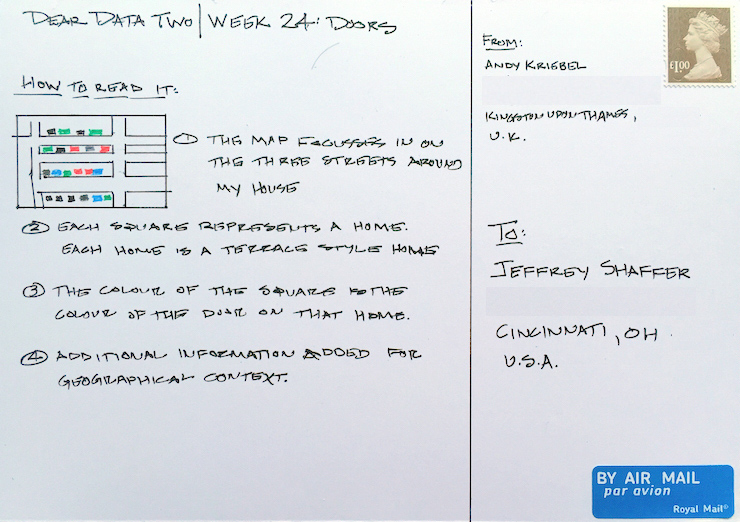 DEAR DATA TWO | WEEK 24: DOORS
HOW TO READ IT:
① THE MAP FOCUSSES IN ON
THE THREE STREETS AROUND
MY HOUSE
② EACH SQUARE REPRESENTS A HOME.
EACH HOME IS A TERRACE STYLE HOME
③ THE COLOUR OF THE SQUARE IS THE
COLOUR OF THE DOOR ON THAT HOME.
④ ADDITIONAL INFORMATION ADDED FOR
GEOGRAPHICAL CONTEXT.
FROM:
ANDY KRIEBEL
KINGSTON UPON THAMES,
U.K.
£1.00
TO:
JEFFREY SHAFFER
CINCINNATI, OH
U.S.A.
BY AIR MAIL
par avion
Royal Mail®